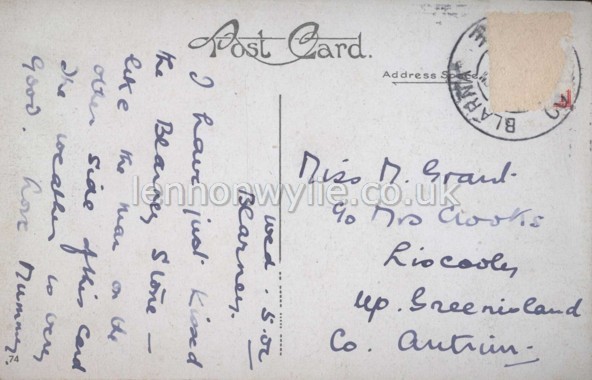 Post Card.
Address
BLARNA
BLARN
Wed. 5.
Blarney.
I have just kissed
the Blarney Stone —
like the man on the
other side of this card
The weather is very
Good. Love Mummy
Miss M. Grant
c/o Mrs Crooks
Up. Greenisland
Co. Antrim
lennonwylie.co.uk
74